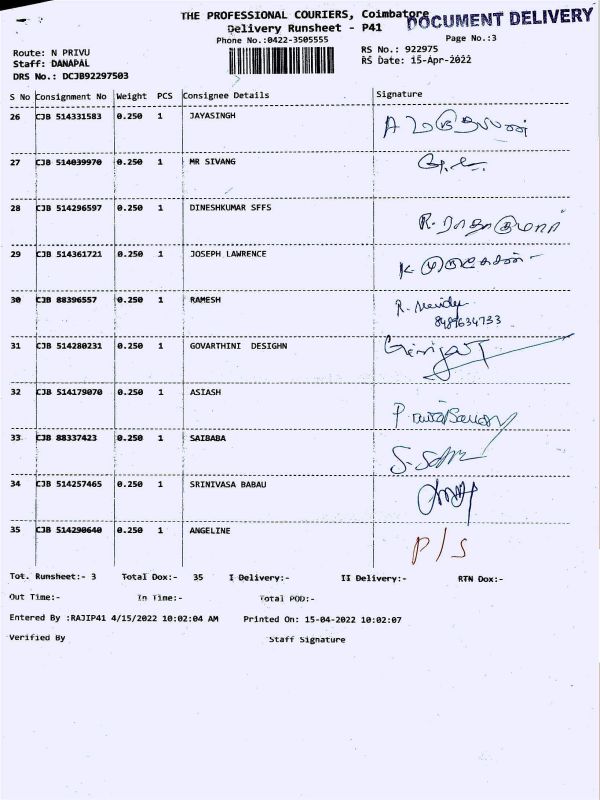 THE PROFESSIONAL COURIERS, Coimbatore
DOCUMENT DELIVERY
Delivery Runsheet - P41
Phone No.:0422-3505555
Page No.:3
Route: N PRIVU
RS No.: 922975
Staff: DANAPAL
RS Date: 15-Apr-2022
DRS No.: DCJB92297503
S No Consignment No Weight PCS Consignee Details Signature
26 CJB 514331583 0.250 1 JAYASINGH
27 CJB 514039970 0.250 1 MR SIVANG
28 CJB 514296597 0.250 1 DINESHKUMAR SFFS R. ராதாகுமார்
29 CJB 514361721 0.250 1 JOSEPH LAWRENCE K முருகேசன்
30 CJB 88396557 0.250 1 RAMESH R.
8489634733
31 CJB 514280231 0.250 1 GOVARTHINI DESIGHN
32 CJB 514179070 0.250 1 ASIASH
33 CJB 88337423 0.250 1 SAIBABA
34 CJB 514257465 0.250 1 SRINIVASA BABAU
35 CJB 514290640 0.250 1 ANGELINE P/S
Tot. Runsheet:- 3 Total Dox:- 35 I Delivery:- II Delivery:- RTN Dox:-
Out Time:- In Time:- Total POD:-
Entered By :RAJIP41 4/15/2022 10:02:04 AM Printed On: 15-04-2022 10:02:07
Verified By Staff Signature